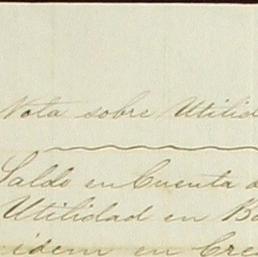 Nota sobre Utilid
Saldo en Cuenta d
Utilidad en Ba
idem en Cre